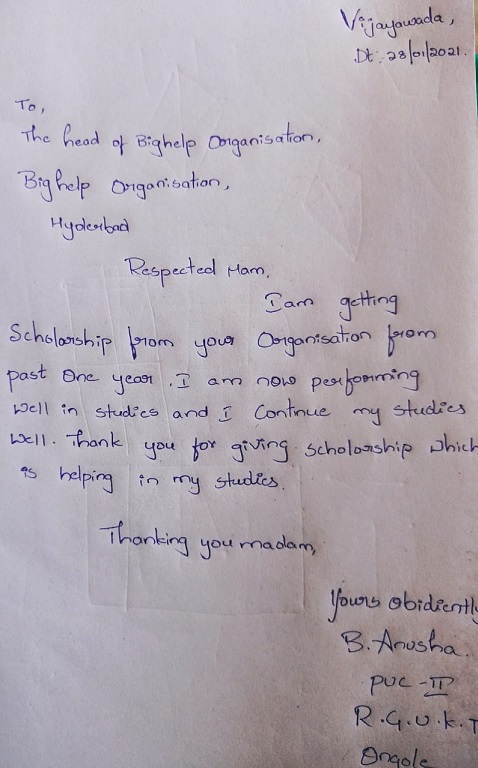 Vijayawada,
Dt: 28/01/2021.
To,
The head of Bighelp Organisation,
Bighelp Organisation,
Hyderbad
Respected Mam,
I am getting
Scholarship from your Organisation from
past One year. I am now performing
well in studies and I Contnue my studies
well. Thank you for giving scholarship which
is helping in my studies.
Thanking you madam,
Yours obidiently
B. Anusha.
PUC - II
R.G.U.K.T
Ongole